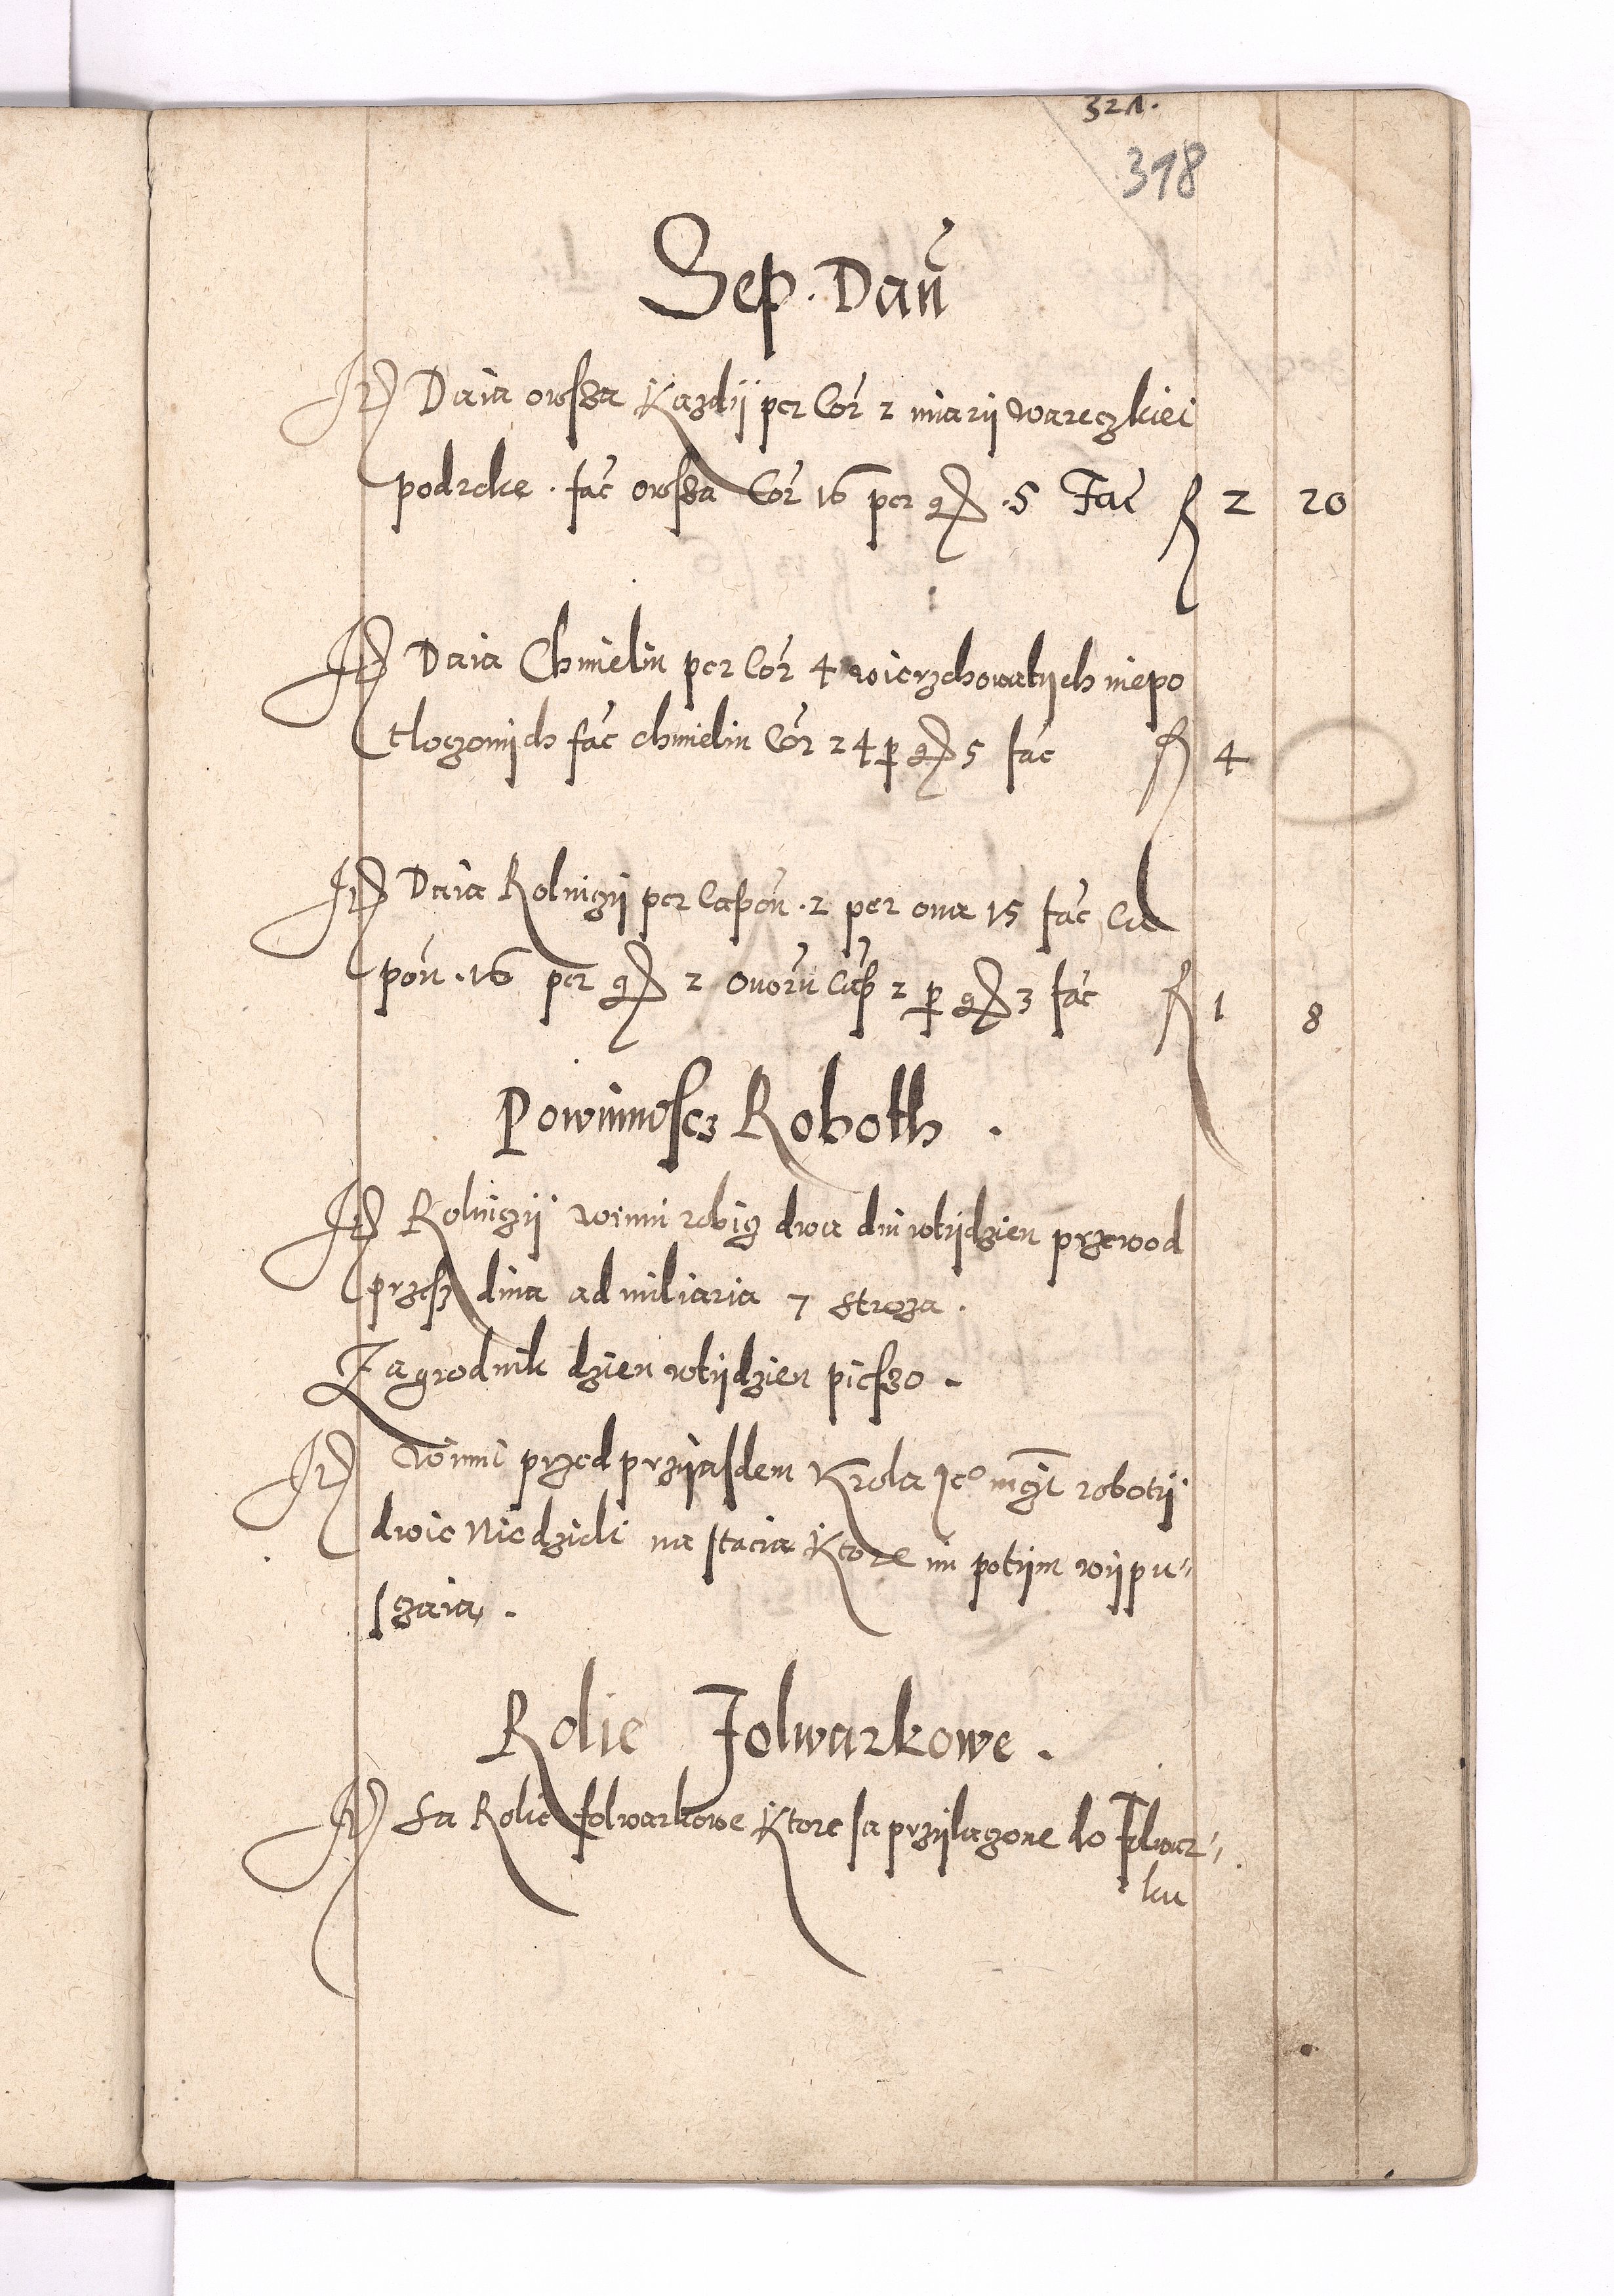 321.
318
Sep. Dań
It Daia owsza Kazdij per Cor 2 miarij wareczkiei
podrcke. fać owsza Cor 16 per gr .5 Fać fl 2 20
It Daia Chmieliu per Cor 4 wierzchowatijch niepo
tloczonijch fać chmieliu Cor 24 p gr 5 fać fl 4
It Daia Rolniczij per Capon. 2 per oua 15 fać Ca
pon. 16 per gr 2 ouoru cap 2 p gr 3 fać fl 1 8
Powinnoscz Roboth.
It Rolniczij winni robicz dwa dni wtijdzien przewod
przesz dina ad miliaria 7 stroza.
Zagrodnik dzien wtijdzien pieszo.
It winni przed przijasdem Krola Jeo mczi robotij
dwie Niedzieli na stacia Ktore im potijm wijpu
szaia.
Rolie Folwarkowe.
It Sa Rolie folwarkowe Ktore sa przijlaczone do Folwar
ku